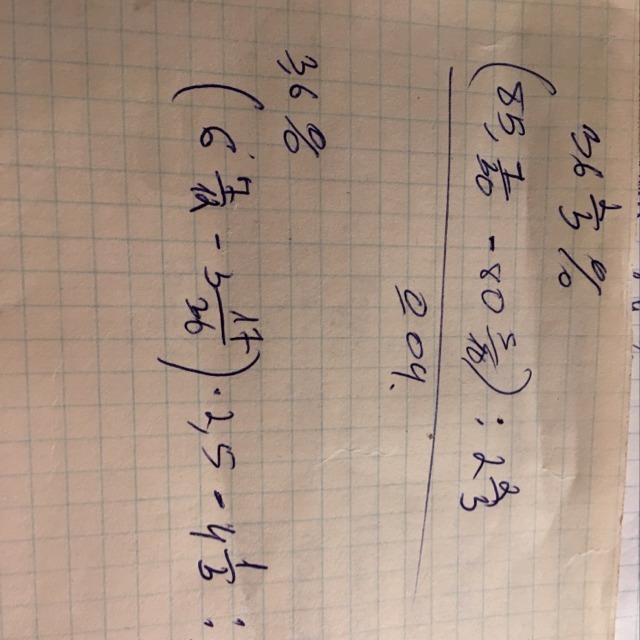 36 2/3 %
(85 7/30 - 80 5/18) : 2 2/3
0 04.
36 %
(6 7/12 - 3 17/36) · 2,5 - 4 1/3 :